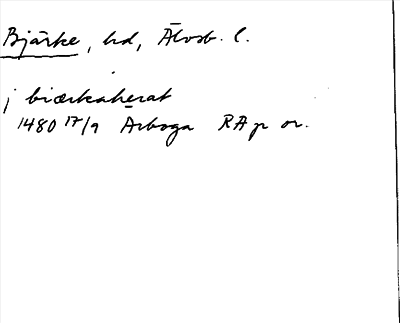 Bjärke, hd, Älvsb. l.
j biærkaherat
1480 17/9 Arboga RA p or.